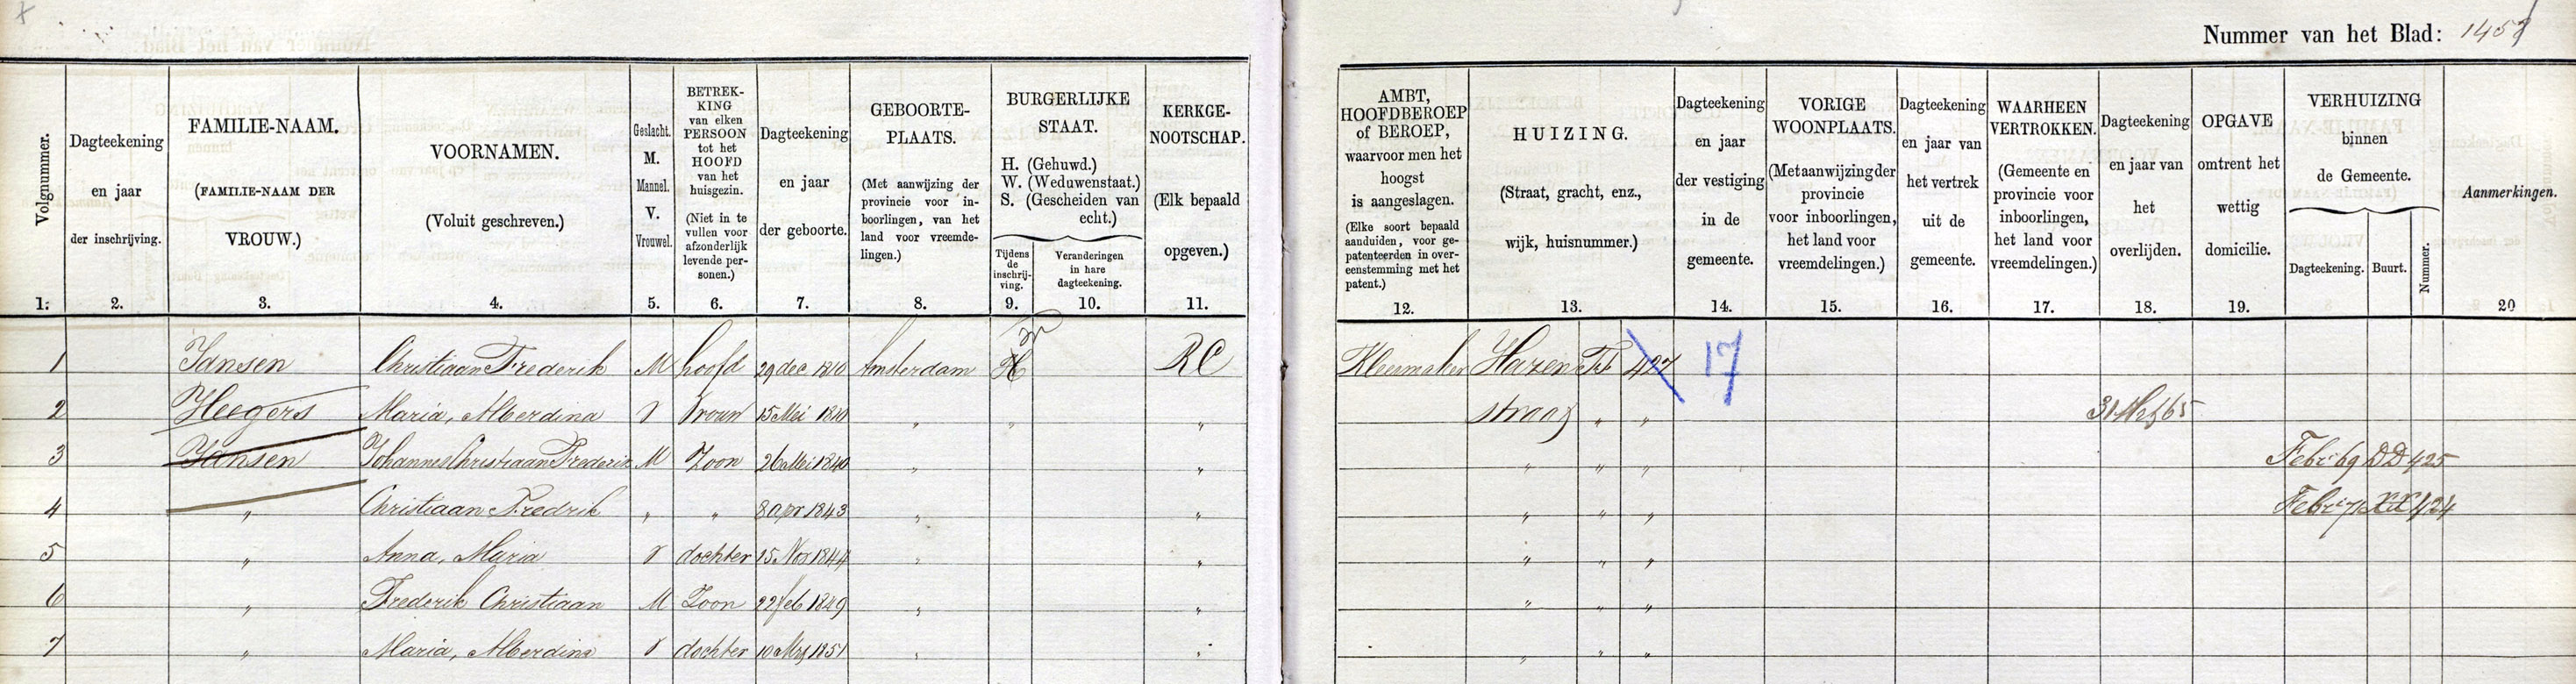 Nummer van het Blad: 1457
Volgnummer. 1.
Dagteekening en jaar der inschrijving. 2.
FAMILIE-NAAM. (FAMILIE-NAAM DER VROUW.) 3.
VOORNAMEN. (Voluit geschreven.) 4.
Geslacht. M. Mannel. V. Vrouwel. 5.
BETREKKING van elken PERSOON tot het HOOFD van het huisgezin. (Niet in te vullen voor afzonderlijk levende personen.) 6.
Dagteekening en jaar der geboorte. 7.
GEBOORTE-PLAATS. (Met aanwijzing der provincie voor inboorlingen, van het land voor vreemdelingen.) 8.
BURGERLIJKE STAAT. H. (Gehuwd.) W. (Weduwenstaat.) S. (Gescheiden van echt.)
Tijdens de inschrijving. 9.
Veranderingen in hare dagteekening. 10.
KERKGENOOTSCHAP. (Elk bepaald opgeven.) 11.
AMBT, HOOFDBEROEP of BEROEP, waarvoor men het hoogst is aangeslagen. (Elke soort bepaald aanduiden, voor gepatenteerden in overeenstemming met het patent.) 12.
HUIZING. (Straat, gracht, enz., wijk, huisnummer.) 13.
Dagteekening en jaar der vestiging in de gemeente. 14.
VORIGE WOONPLAATS. (Met aanwijzing der provincie voor inboorlingen, het land voor vreemdelingen.) 15.
Dagteekening en jaar van het vertrek uit de gemeente. 16.
WAARHEEN VERTROKKEN. (Gemeente en provincie voor inboorlingen, het land voor vreemdelingen.) 17.
Dagteekening en jaar van het overlijden. 18.
OPGAVE omtrent het wettig domicilie. 19.
VERHUIZING binnen de Gemeente. Dagteekening. Buurt. Nummer.
Aanmerkingen. 20
1 Jansen Christiaan Frederik M hoofd 29 dec 1810 Amsterdam H W RC Kleermaker Hazen 427 17
2 Heegers Maria, Alberdina V Vrouw 15 Mei 1810 " " " straat " " 31 Mrt 65
3 Jansen Johannes Christiaan Frederik M Zoon 26 Mei 1840 " " " " " Febr 69 DD 425
4 " Christiaan Fredrik " " 8 Apr 1843 " " " " " Febr 71 XX 424
5 " Anna, Maria V dochter 15 Nov 1844 " " " " "
6 " Frederik Christiaan M Zoon 22 feb 1849 " " " " "
7 " Maria, Alberdina V dochter 10 Mrt 1851 " " " " "